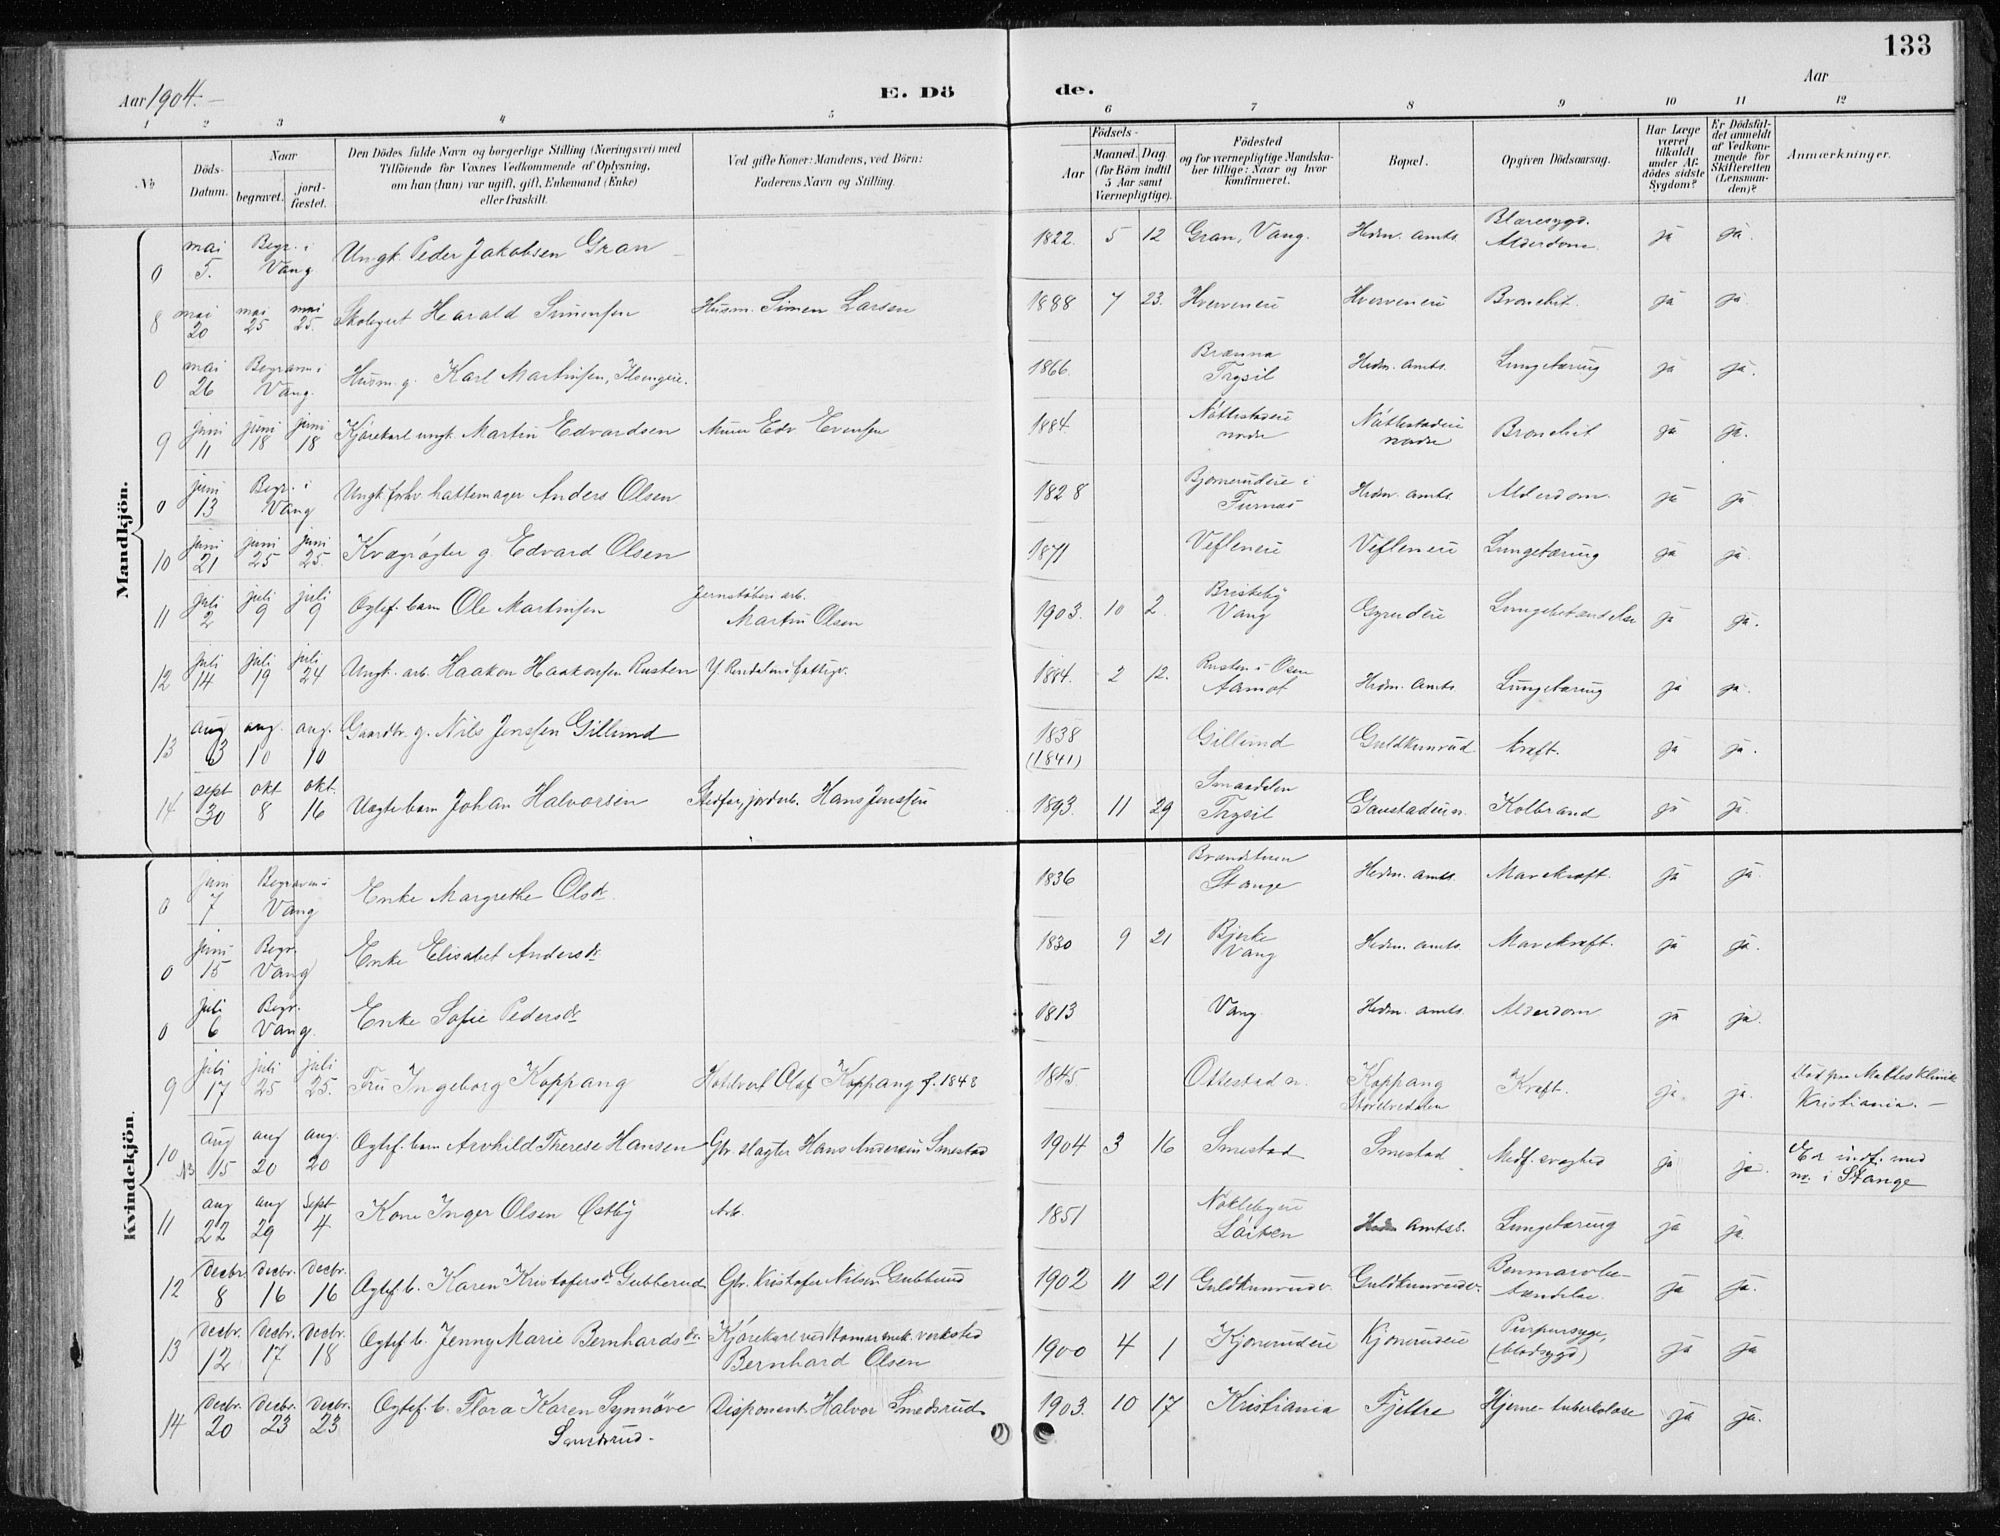 133
Aar 1904.-
E. Dö
de.
Aar
1 2 3 4 5 6 7 8 9 10 11 12
№
Döds-Datum.
Naar
begravet.
jord-fæstet.
Den Dödes fulde Navn og borgerlige Stilling (Næringsvei) med
Tilföiende for Voxnes Vedkommende af Oplysning,
om han (hun) var ugift, gift, Enkemand (Enke)
eller fraskilt.
Ved gifte Koner: Mandens, ved Börn:
Faderens Navn og Stilling.
Födsels-
Aar
Maaned. Dag
(for Börn indtil
5 Aar samt
Værnepligtige).
Födested
og for værnepligtige Mandska-
ber tillige: Naar og hvor
konfirmeret.
Bopæl.
Opgiven Dödsaarsag.
Har Læge
været
tilkaldt
under Af-
dödes sidste
Sygdom?
Er Dödsfal-
det anmeldt
af Vedkom-
mende for
Skifteretten
(Lensman-
den)?
Anmærkninger.
Mandkjön.
0 mai 5. Begr. i Vang Ungk. Peder Jakobsen Gran 1822. 5 12 Gran, Vang. Hedm. amts. Blæresygd. Alderdom. ja ja.
8 mai 20 mai 25 mai 25. Skolegut Harald Simensen Husm. Simen Larsen 1888 7 23. Hverveneie Hverveneie Bronchit. ja ja.
0 mai 26 Begravn i Vang. Husm. g. Karl Martinsen, Ilsengeie. 1866. Brænna Trysil Hedm. amts. Lungetæring ja ja.
9 juni 11 juni 18 juni 18 Kjørekarl ungk. Martin Edvardsen Murer Edv Evensen 1884. Nøttestadeie nordre Nøttestadeie nordre Bronchit ja ja.
0 juni 13 Begr. i Vang Ungk. forhv. hattemager Anders Olsen 1828 Bjørnerudeie i Furnæs Hedm. amts. Alderdom. ja ja.
10 juni 21 juni 25 juni 25. Kvægrøgter g. Edvard Olsen 1871 Vefleneie Vefleneie Lungetæring ja ja.
11 juli 2 juli 9 juli 9 Ogtef. barn Ole Martinsen Jernstøberi arb. Martin Olsen 1903. 10 2. Bristeby Vang Gyrudeie Lungebetændelse ja ja.
12 juli 14 juli 19 juli 24 Ungk. arb. Haakon Haakonsen Rusten Y. Rendalens fattigv. 1884. 2 12. Rusten i Osen Aamot Hedm. Amts. Lungetæring ja ja.
13 aug 3 aug. 10 aug. 10 Gaardbr. g. Nils Jenssen Gillund 1838 (1841) Gillund Guldkunrud kræft. ja ja.
14 sept 30 okt 8 okt. 16 Uægte barn Johan Halvorsen Stedfar, jordarb. Hans Jenssen 1893. 11 29 Smaadalen Trysil Gaustadeie n. Kolbrand ja ja.
Kvindekjön.
0 juni 7 Begraven i Vang Enke Margrethe Olsdr. 1836 Stange Hedm. amts. Mavekræft. ja ja.
0 juni 15 Begr. Vang Enke Elisabet Andersdr. 1830 9 21 Bjerke Vang Hedm. amts. Mavekræft. ja ja.
0 juli 6 Begr. Vang. Enke Sofie Pedersdr 1813 Vang. Hedm. amts. Alderdom ja ja.
9 juli 17 juli 25 juli 25. Fru Ingeborg Koppang Hotelvert Olaf Koppang f. 1848 1845. Ottestad n. Koppang Storelvedalen Kræft. ja ja. Död paa Malthes klinik Kristiania.-
10 NB aug 15 aug 20 aug. 20 Ogtef. barn Arnhild Therese Hansen Gbr. slagter Hans Andersen Smestad 1904 3 16 Smestad Smestad Medf. svaghed ja ja. Er indf. med no. i Stange
11 aug 22 aug 29 Sept 4 Kone Inger Olsen Østby Arb. 1851 Nøklebyeie Løiten Hedm Amtss. Lungetæring ja ja.
12 decbr 8 decbr. 16 decbr. 16 Ogtef. b. Karen Kristofersdr. Gubberud Gbr. Kristofer Nilsen Gubberud 1902 11 21 Guldkunrudv. Guldkunrudv. Benmarvbe-tændelse. ja ja.
13 decbr. 12 decbr. 17 decbr. 18 Ogtef. b. Jenny Marie Bernhardsdr. Kjørekarl ved Hamar mek. verksted Bernhard Olsen 1900 4 1 Kjonerudeie Kjonerudeie Purpursyge, (blodsygd) ja ja
14 decbr. 20 decbr. 23 decbr. 23 Ogtef. b. Flora Karen Synnøve Smedsrud. Disponent Halvor Smedsrud 1903. 10 17 Kristiania Fjeltre Hjerne-tuberkulose ja ja.